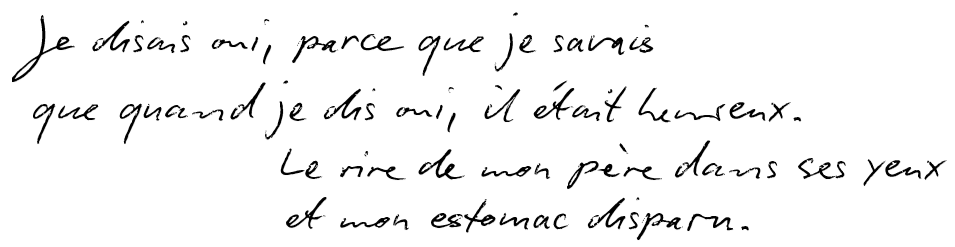 Je disais oui, parce que je savais
que quand je dis oui, il était heureux.
Le rire de mon père dans ses yeux
et mon estomac disparu.